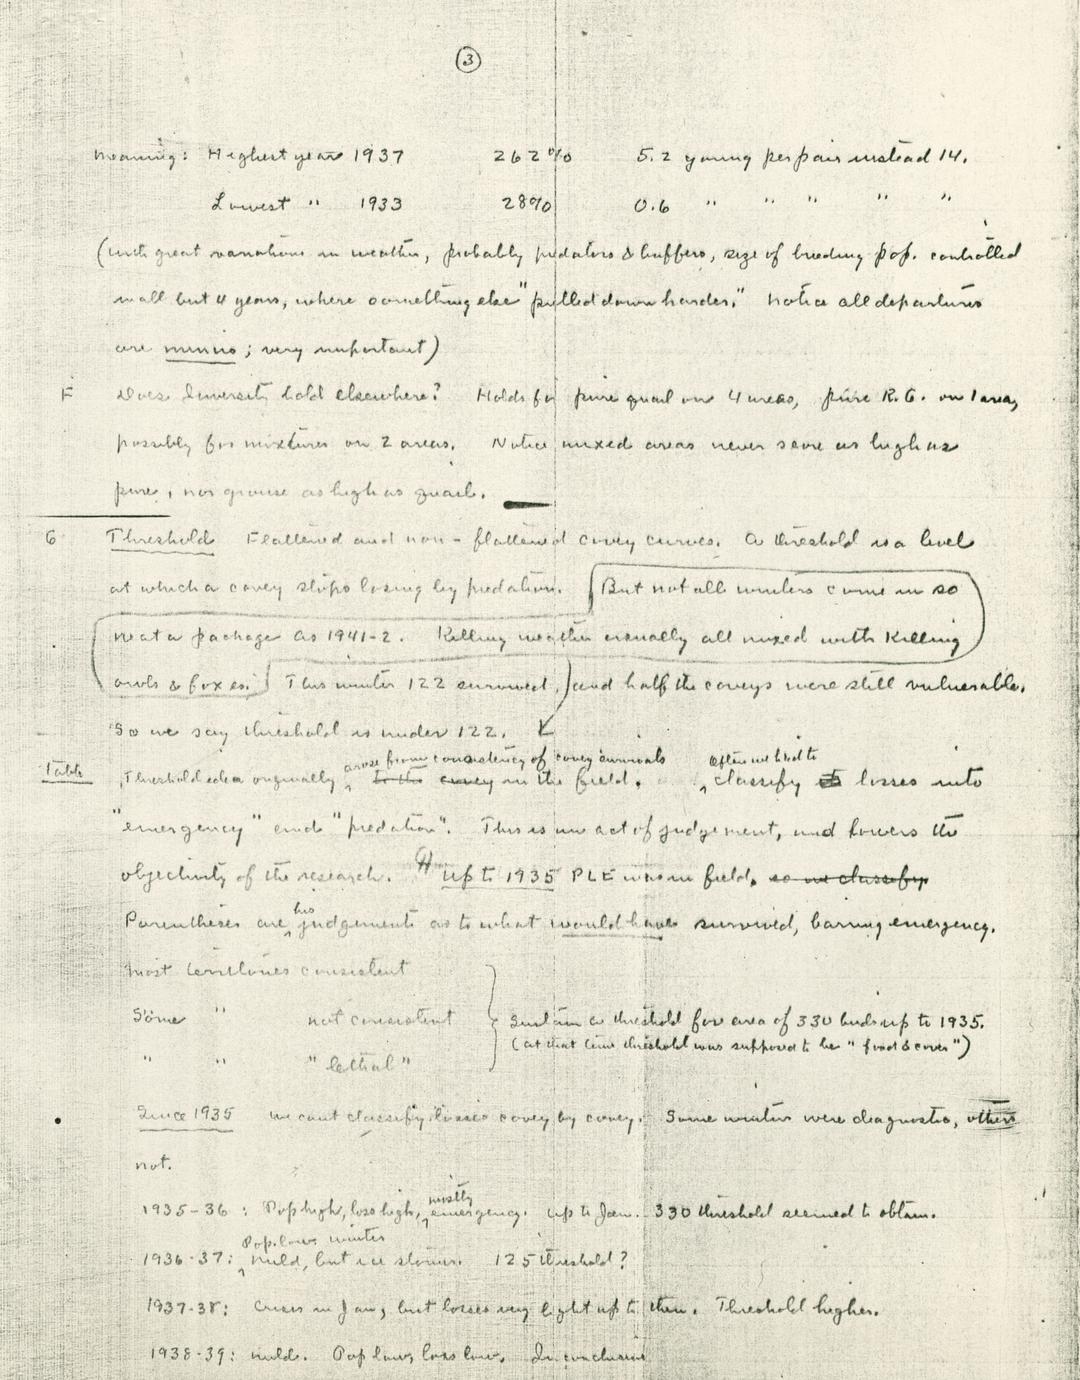 ③
Meaning: Highest year 1937 262% 5.2 young per pair instead 14.
Lowest " 1933 28% 0.6 " " " " "
(with great variations in weather, probably predators & buffers, size of breeding pop. controlled
in all but 4 years, where something else "pulled down harder." Notice all departures
are minus; very important)
F Does Inversity hold elsewhere? Holds for pure quail on 4 areas, pure R.G. on 1 area,
possibly for mixtures on 2 areas. Notice mixed areas never score as high as
pure, nor grouse as high as quail.
G Threshold Flattened and non-flattened covey curves. A threshold is a level
at which a covey stops losing by predation. But not all winters come in so
neat a package as 1941-2. Killing weather usually all mixed with killing
owls & foxes. This winter 122 survived, and half the coveys were still vulnerable.
So we say threshold is under 122.
arose from consistency of covey survivals Often we tried to
Table Threshold idea originally covey in the field. classify losses into
"emergency" and "predation". This is an act of judgement, and lowers the
objectivity of the research. Up to 1935 PLE was in field. so we classify
his
Parentheses are judgements as to what would have survived, barring emergency.
Most territories consistent
Some " not consistent Sustain a threshold for area of 330 birds up to 1935.
(at that time threshold was supposed to be "food & cover")
" " "lethal"
Since 1935 we cant classify losses covey by covey. Some winters were diagnostic, others
not.
mostly
1935-36: Pop high, loss high, emergency. Up to Jan. 330 threshold seemed to obtain.
Pop. low, winter
1936-37: mild, but ice storms. 125 threshold?
1937-38: Crisis in Jan, but losses very light up to then. Threshold higher.
1938-39: mild. Pop low, loss low. Inconclusive